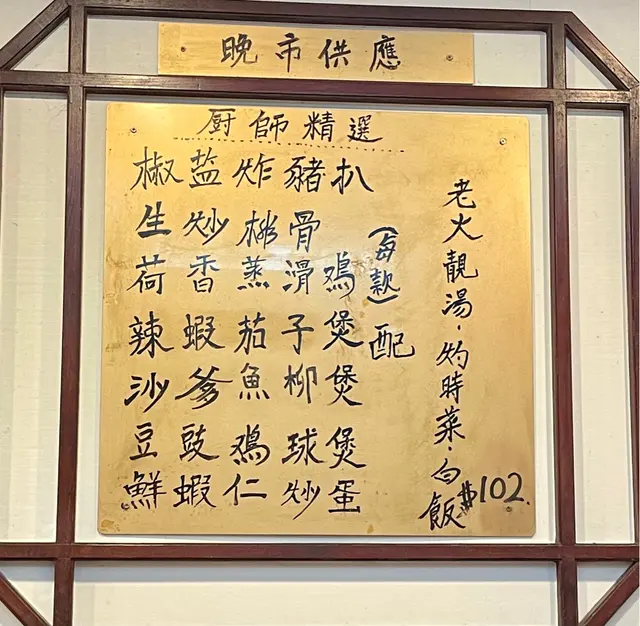 晚市供應
厨師精選
椒盐炸豬扒
生炒排骨
荷香蒸滑鸡
辣蝦茄子煲
沙爹魚柳煲
豆豉鸡球煲
鮮蝦仁炒蛋
(每款)配
老火靚湯·灼時菜·白飯
$102.